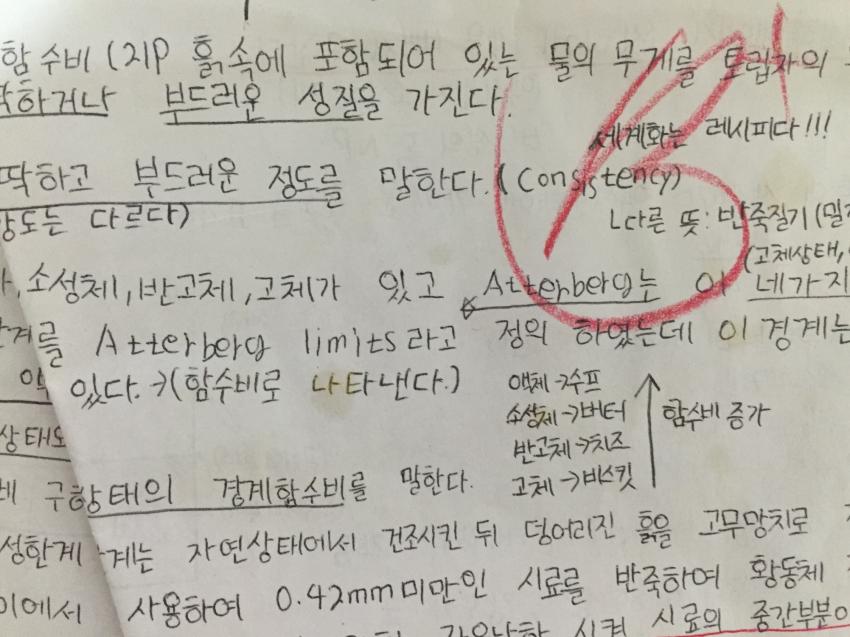 함수비(2)P 흙속에 포함되어 있는 물의 무게를 토립자의
부드러운 성질을 가진다.
세계화는 레시피다!!!
딱하고 부드러운 정도를 말한다. (Consistency)
강도는 다르다)
ㄴ다른 뜻: 반죽질기(밀
(고체상태,
소성체, 반고체, 고체가 있고 Atterberg는 이 네가지
계를 Atterberg limits라고 정의 하였는데 이 경계는
있다. →(함수비로 나타낸다.)
액체→수프
소성체→버터
반고체→치즈
고체→비스킷
함수비 증가
상태의
구항태의 경계함수비를 말한다.
성한계
계는 자연상태에서 건조시킨 뒤 덩어리진 흙을 고무망치로
이에서
사용하여 0.42mm미만인 시료를 반죽하여 황동체
시켜 시료의 중간부분이